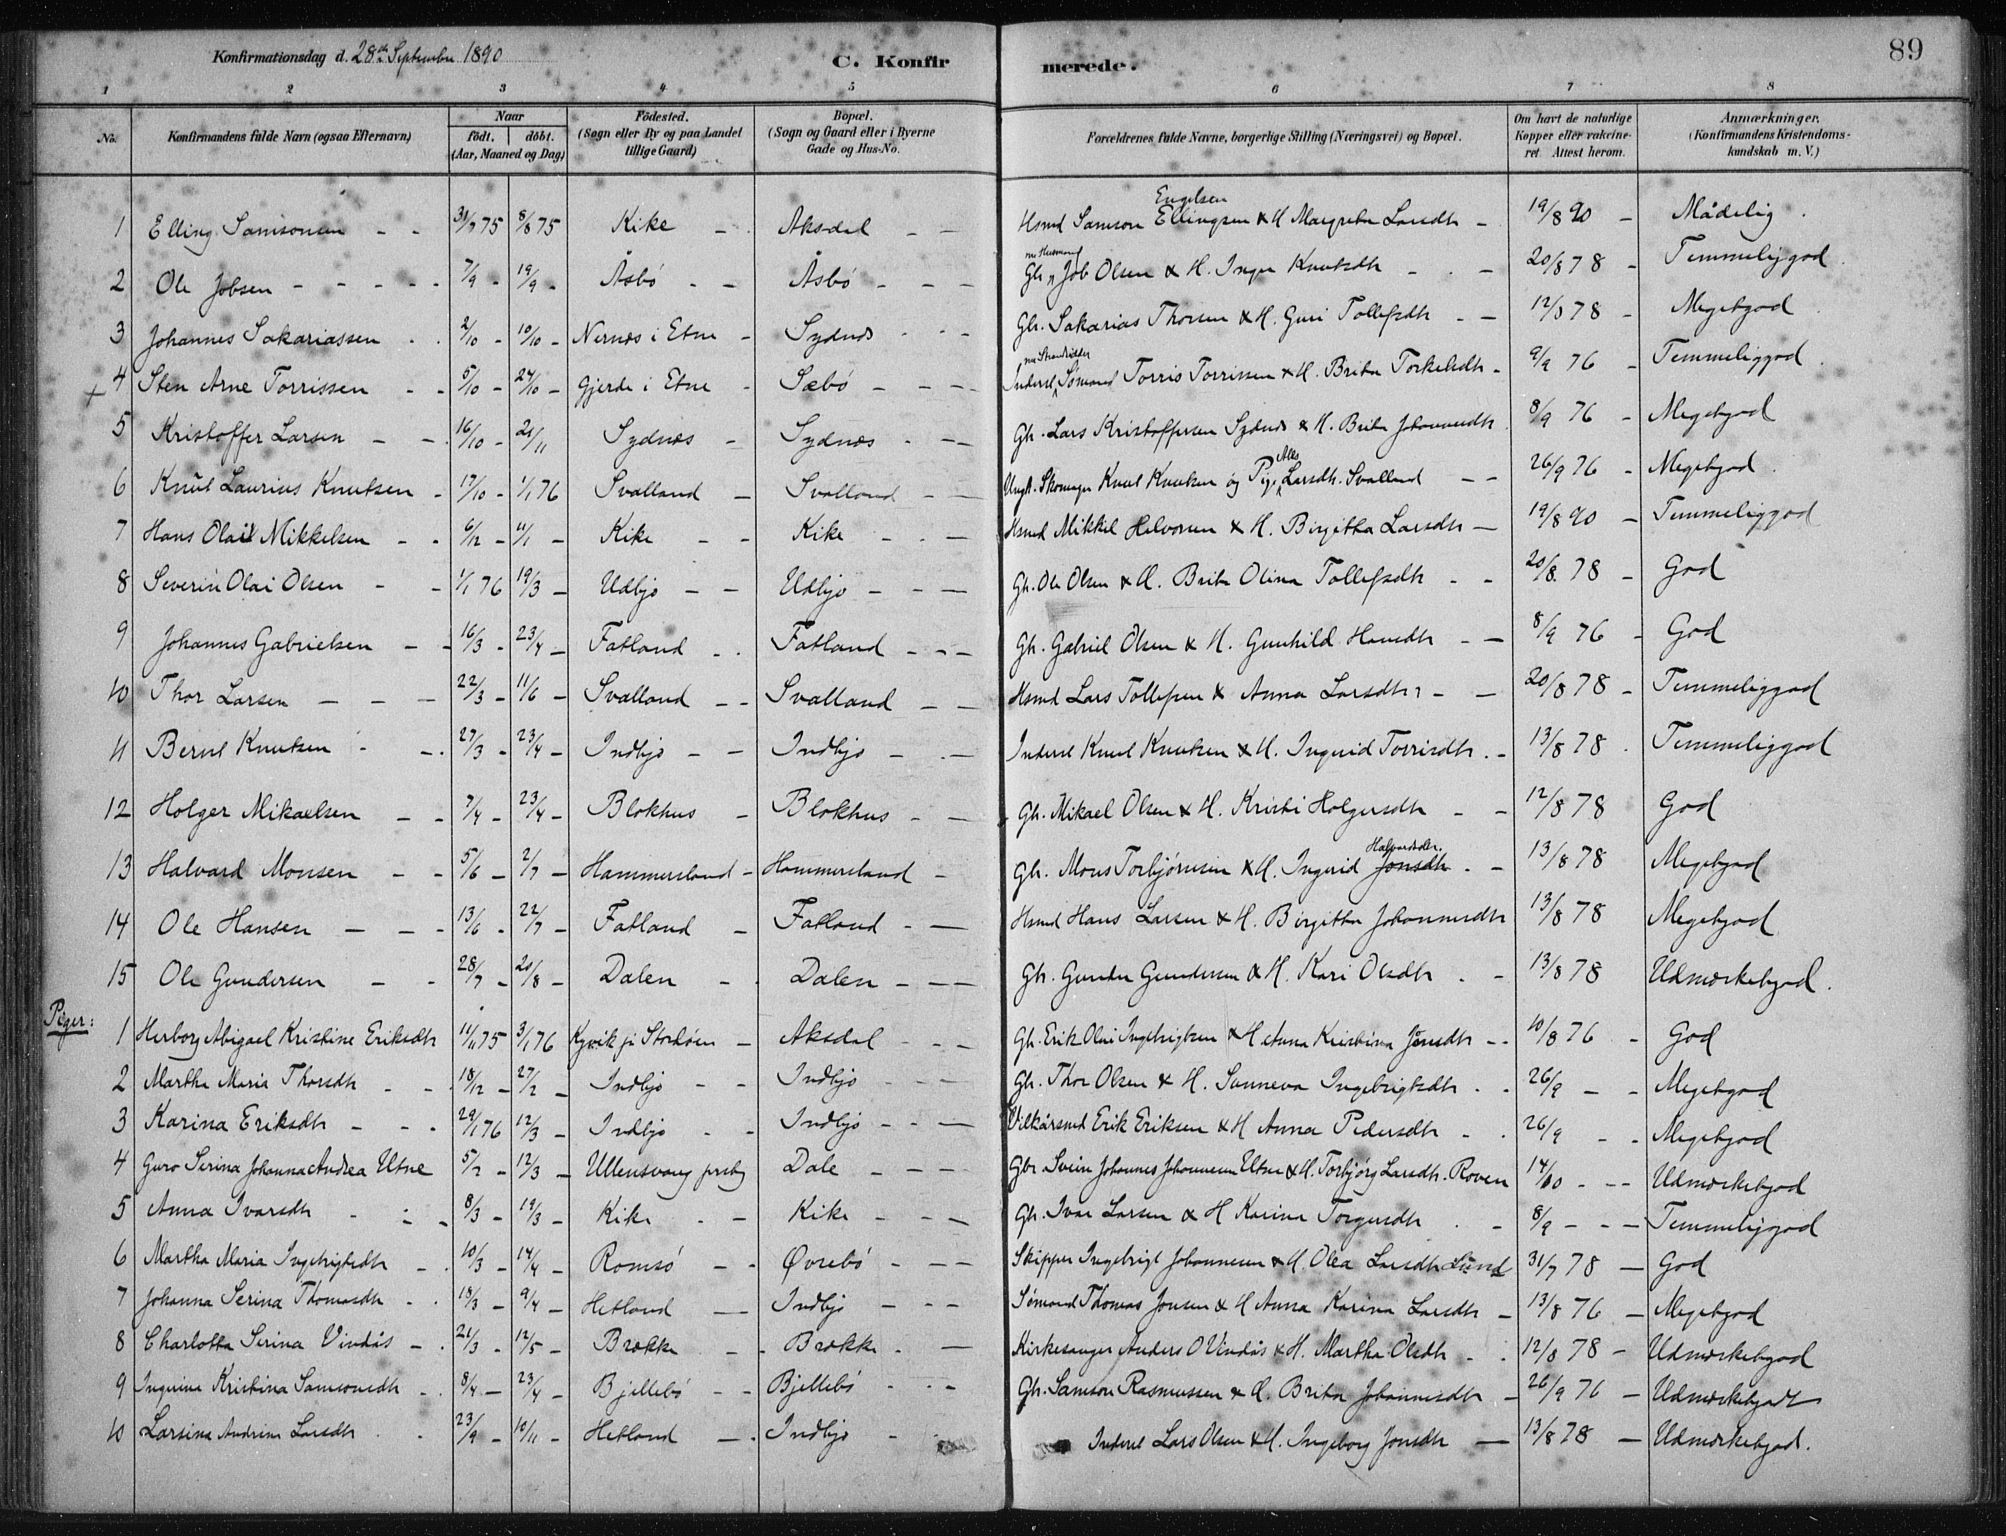 Konfirmationsdag d. 28de September 1890
C. Konfir merede.
89
1 2 3 4 5 6 7 8
No. Konfirmandens fulde Navn (ogsaa Efternavn) Naar födt. döbt. (Aar, Maaned og Dag) Födested. (Sogn eller By og paa Landet tillige Gaard) Bopæl. (Sogn og Gaard eller i Byerne Gade og Hus-No. Forældrenes fulde Navne, borgerlige Stilling (Næringsvei) og Bopæl. Om havt de naturlige Kopper eller vakcineret. Attest herom. Anmærkninger. (Konfirmandens Kristendomskundskab m. V.)
1 Elling Samsonsen - - 31/7 75 8/8 75 Kike - Aksdal - - Hsmd Samson Engelsen Ellingsen & H Margreta Larsdtr - 19/8 90 - Mådelig.
2 Ole Jobsen - - - - 7/9 - 19/9 - Åsbö - - Åsbö - - - Gbr. nu Husmand Job Olsen & H. Inger Knutsdtr - - 20/8 78 - Temmeliggod
3 Johannes Sakariassen - 2/10 - 10/10 - Nernæs i Etne - Sydnæs - - Gbr. Sakarias Thorsen & H. Guri Tollefsdtr - - 12/8 78 - Megetgod
+ 4 Sten Arne Torrissen - - 5/10 - 24/10 - Gjerde i Etne - Sæbö - - - Inderst nu Strandsidder Sömand Torris Torrissen & H. Brita Torkelsdtr - 9/9 76 - Temmeliggod
5 Kristoffer Larsen - - 16/10 - 21/11 Sydnæs - Sydnæs - - Gbr. Lars Kristoffersen Sydnæs & H. Brita Johannesdtr 8/9 76 - Megetgod
6 Knut Laurius Knutsen - 17/10 - 1/1 76 Svalland - Svalland - - Ungk. Skomager Knut Knutsen og Pige Larsdtr. Svalland - - 26/9 76 - Megetgod
7 Hans Olai Mikkelsen - - 6/12 - 11/1 - Kike - - Kike - - Hsmd Mikkel Helvorsen & H. Birgitha Larsdtr - 19/8 90 - Temmeliggod
8 Severin Olai Olsen - - 1/1 76 19/3 - Udbjo - - Udbjo - - - Gbr. Ole Olsen & H. Brita Olina Tollefsdtr - - 20/8. 78 - God
9 Johannes Gabrielsen - - 16/3 - 23/4 - Fatland - - Fatland - - - Gbr. Gabriel Olsen & H. Gunhild Hansdtr - - 8/9 76 - God
10 Thor Larsen - - - 22/3 - 11/6 - Svalland - - Svalland - - Hsmd Lars Tollefsen & Anna Larsdtr - - 20/8 78 - Temmeliggod
11 Bernt Knutsen - - 27/3 - 23/4 - Indbjo - - Indbjo - - Inderst Knut Knutsen & H. Ingerid Torrisdtr. - 13/8 78 - Temmeliggod
12 Holger Mikaelsen - - 7/4 - 23/4 - Blokhus - Blokhus - - Gbr. Mikael Olsen & H. Kristi Holgersdtr - - 12/8 78 God
13 Halvard Monsen - - 5/6 - 2/7 - Hammersland - Hammersland - Gbr. Mons Torbjörnsen & H. Ingerid Halvardsdtr. Jonsdtr - - 13/8 78 Megetgod
14 Ole Hansen - - - 13/6 - 22/7 - Fatland - Fatland - - Hsmd Hans Larsen & H. Birgitha Johannesdtr 13/8 78 Megetgod
15 Ole Gundersen - - 28/7 - 20/8 - Dalen - - Dalen - - - Gbr. Gunder Gundersen & H. Kari Olsdtr - - 13/8 78 Udmærketgod.
Piger:
1 Herborg Abigael Kristine Eriksdtr 11/11 75 3/1 76 Kyvik i Stordöen - Aksdal - - - Gbr. Erik Olai Ingebrigtsen & H Anna Kristina Jonsdtr - - 10/8 76 - God
2 Martha Maria Thorsdtr - - 18/12 - 27/2 - Indbjo - - Indbjo - - - Gbr. Thor Olsen & H. Sunneva Ingebrigtsdtr - - 26/9 - - Megetgod
3 Karina Eriksdtr - - - 29/1 76 12/3 - Indbjo - - Indbjo - - - Vilkårsmd Erik Eriksen & H Anna Pedersdtr - - 26/9 - - Megetgod
4 Guro Serina Johanna Andrea Utne 5/2 - 12/3 - Ullensvang prstg Dale - - - Gbr. Svein Johannes Johannesen Utne & H. Torbjörg Larsdtr. Roven 14/ - - Udmærketgod
5 Anna Ivarsdtr - - - 8/3 - 19/3 - Kike - - Kike - - - Gbr. Ivar Larsen & H Karina Torgersdtr - - 8/9 - - - Temmeliggod
6 Martha Maria Ingebrigtsdtr - - 10/3 - 14/4 - Romsö - - Øvrebö - - - Skipper Ingebrigt Johannesen & H. Olea Larsdtr Lund 31/7 78 - God
7 Johanna Serina Thomasdtr - - 18/3 - 9/4 - Hetland - Indbjo - - - Sömand Thomas Jonsen & H Anna Karina Larsdtr - 13/8 76 - Megetgod
8 Charlotta Serina Vindås - - 21/3 - 12/5 - Brække - - Brække - - Kirkesanger Anders O Vindås & H. Martha Olsdtr - - 12/8 78 - Udmærketgod
9 Ingerine Kristina Samsonsdtr - - 8/4 - 23/4 - Bjellebö - - Bjellebö - - - Gbr. Samson Rasmussen & H. Brita Johannesdtr - 26/9 76 - Udmærketgodt
10 Larsina Andrina Larsdtr - - 23/9 - 12/11 - Hetland - - Indbjo - Inderst Lars Olsen & H. Ingeborg Jonsdtr - 13/8 78 - Udmærketgod.